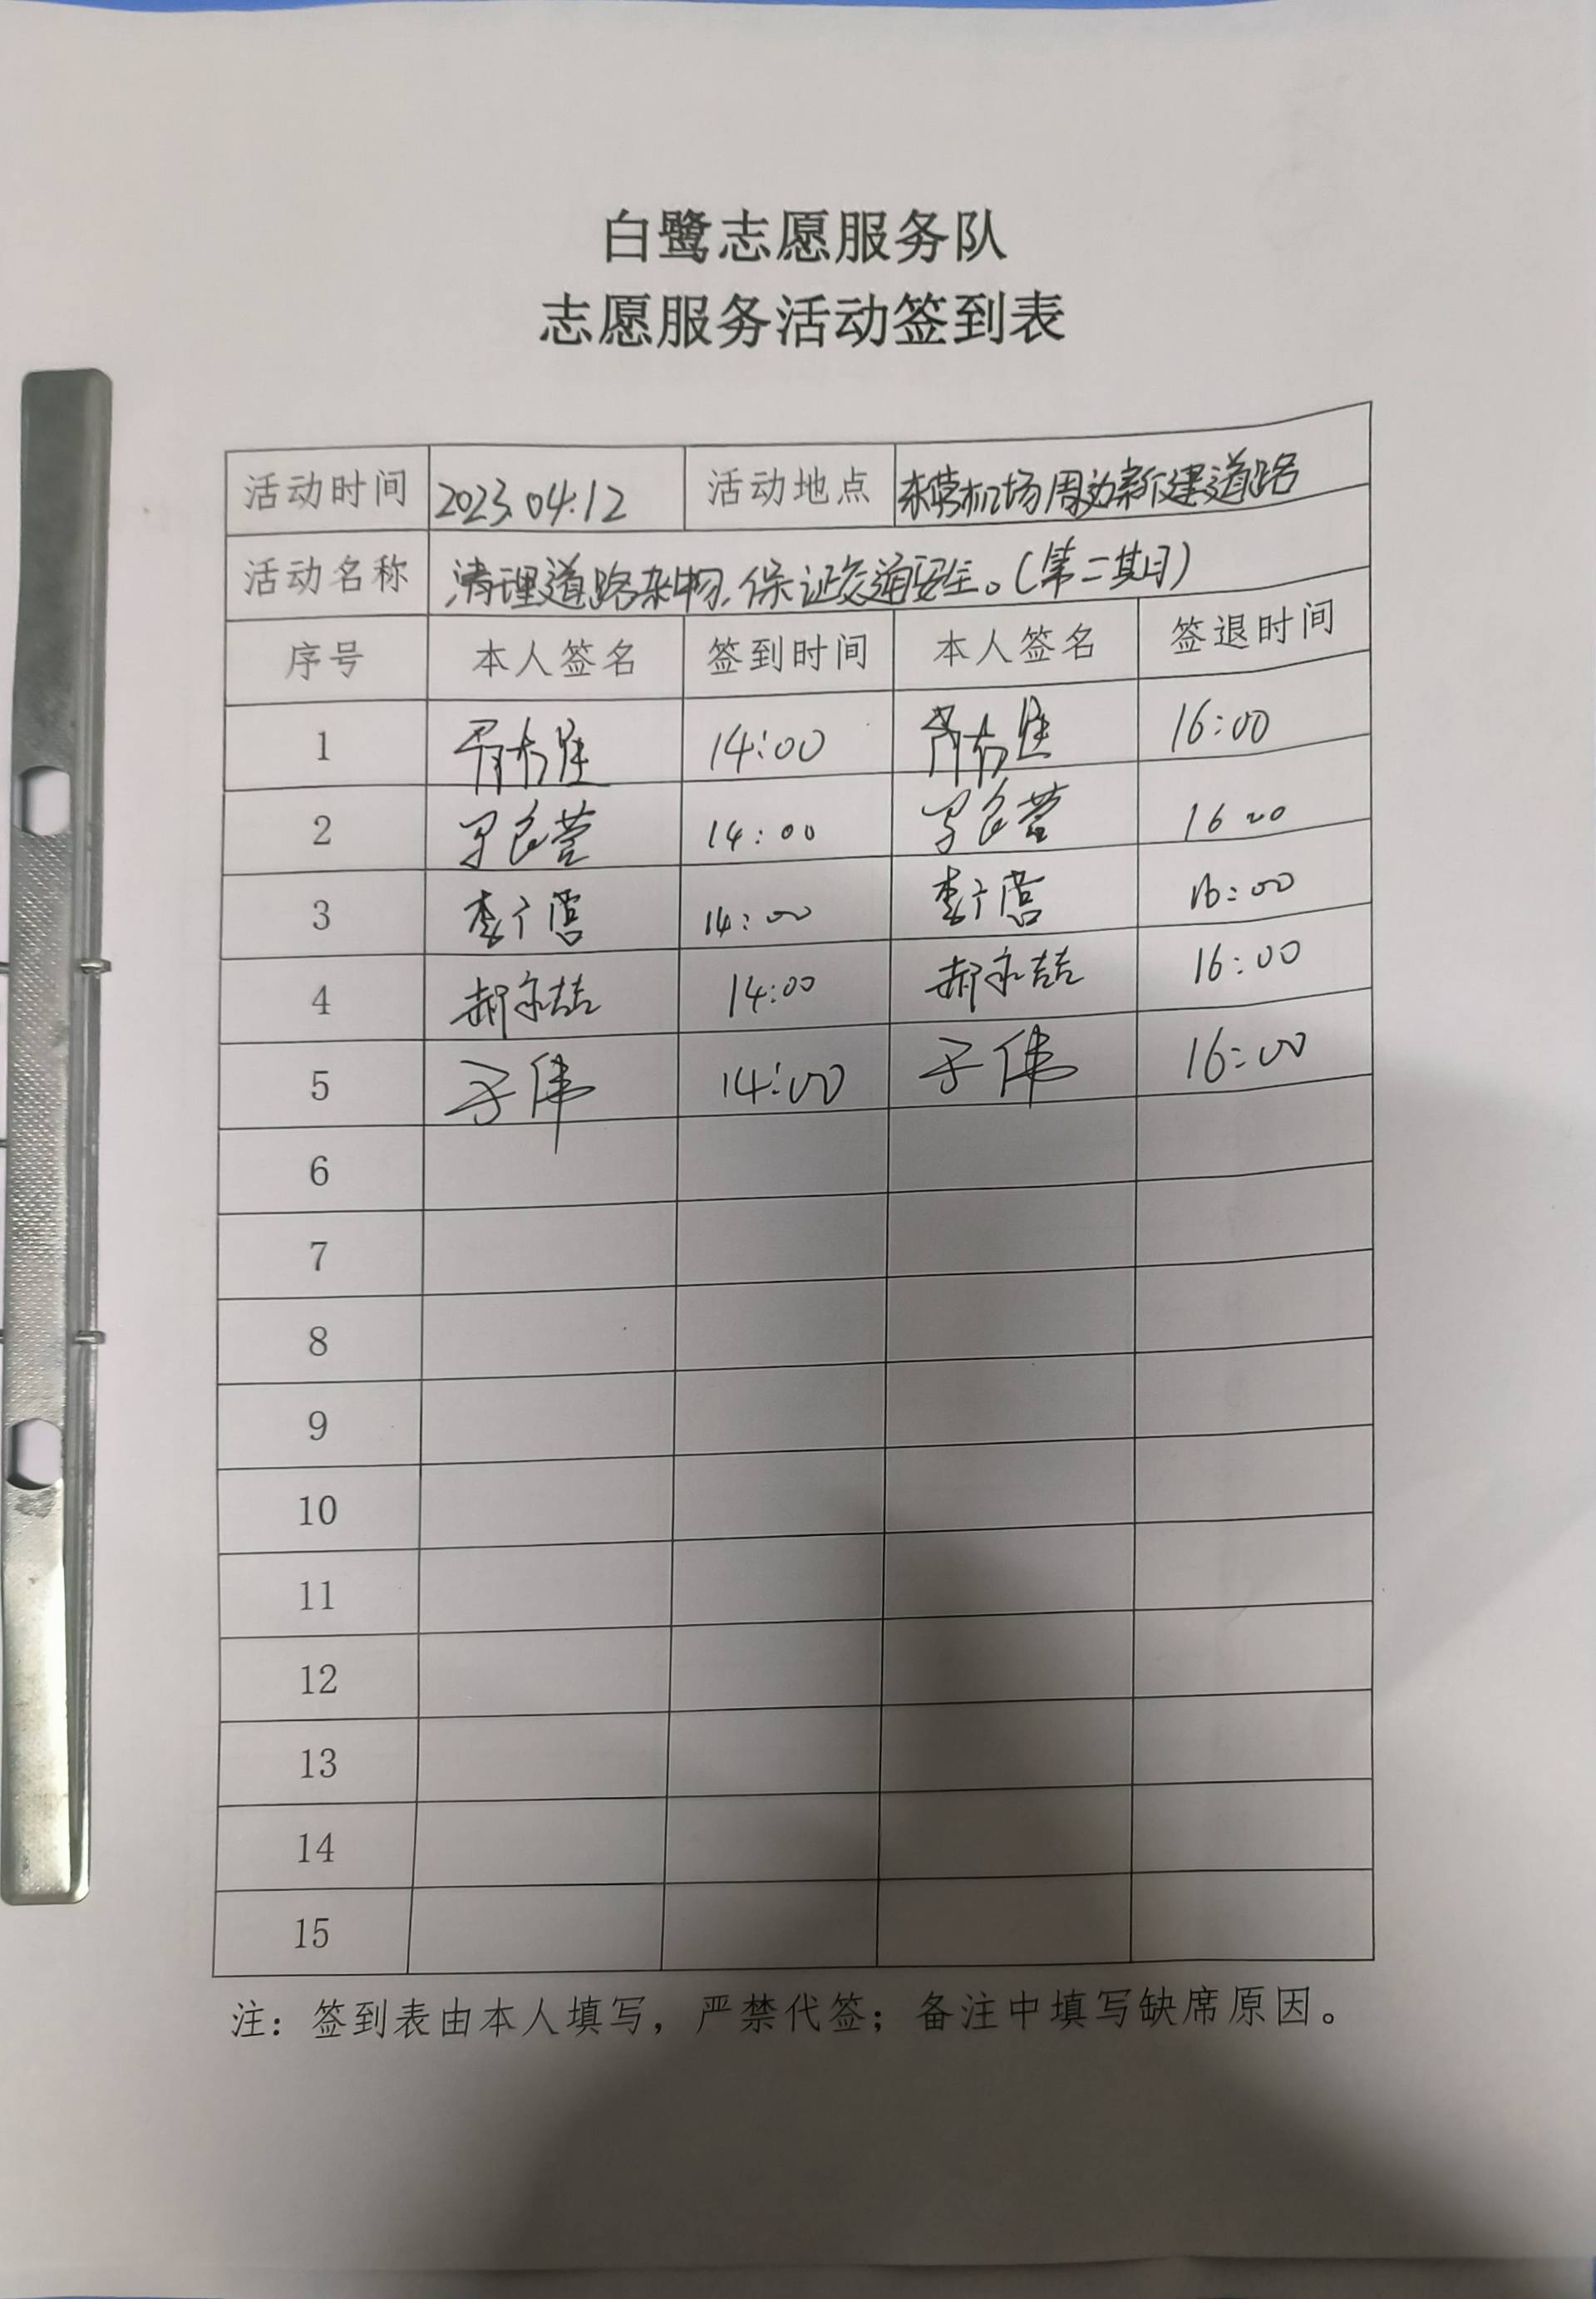 白鹭志愿服务队
志愿服务活动签到表
活动时间 2023.04.12 活动地点 东营机场周边新建道路
活动名称 清理道路杂物、保证交通安全。(第二期)
序号 本人签名 签到时间 本人签名 签退时间
1 14:00 16:00
2 14:00 16:00
3 李广营 14:00 李广营 16:00
4 郝永喆 14:00 郝永喆 16:00
5 于伟 14:00 于伟 16:00
6
7
8
9
10
11
12
13
14
15
注：签到表由本人填写，严禁代签；备注中填写缺席原因。